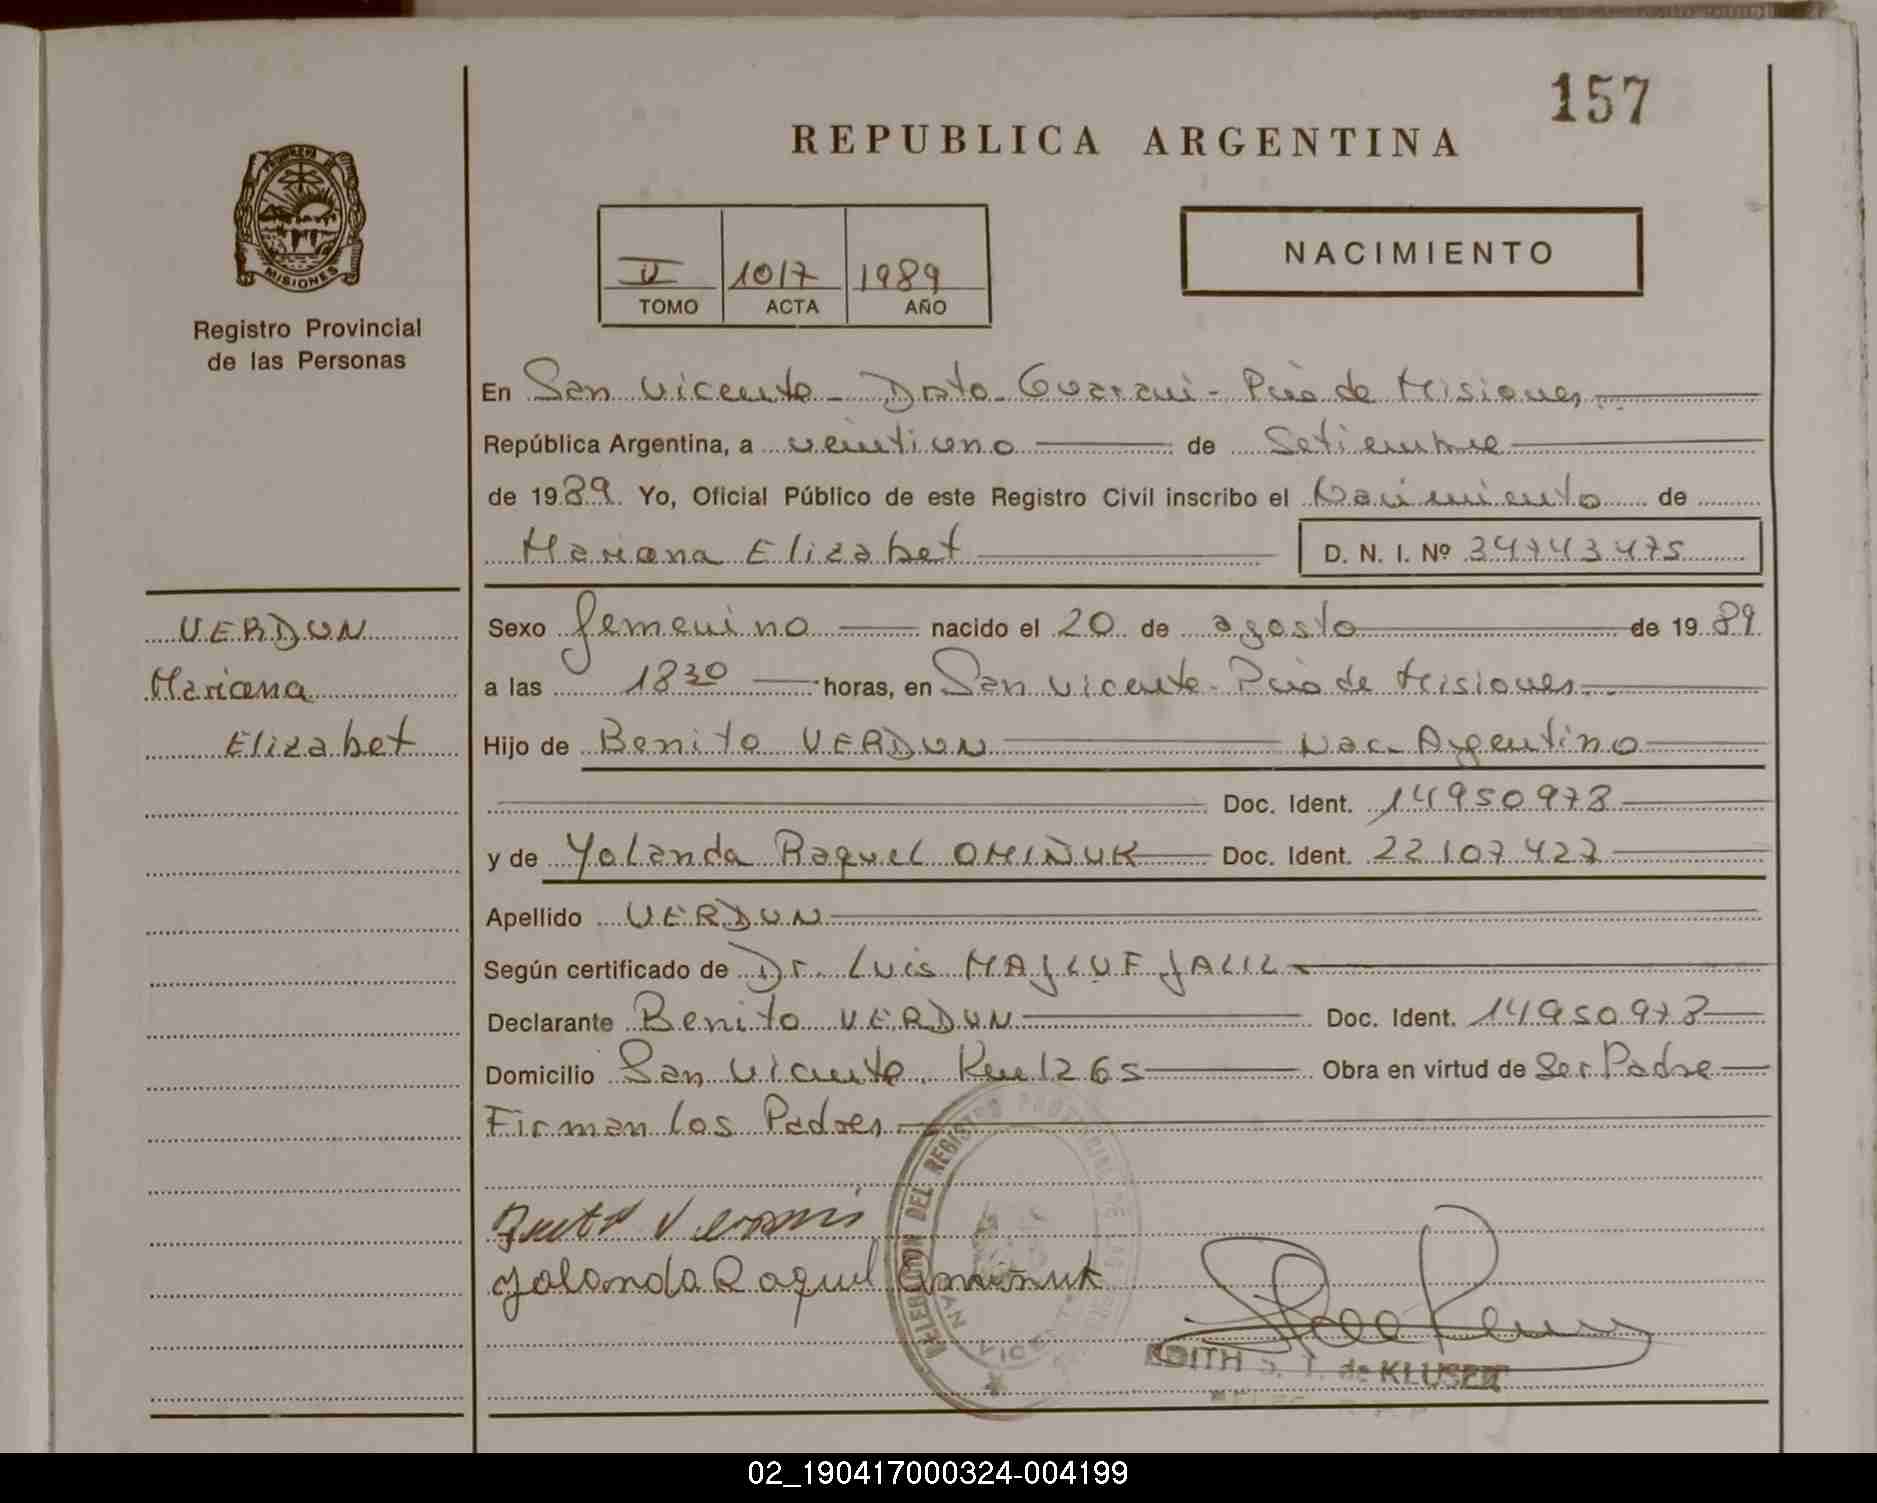 157
REPUBLICA ARGENTINA
MISIONES
Registro Provincial
de las Personas
II 1017 1989
TOMO ACTA AÑO
NACIMIENTO
En San Vicente - Dpto. Guarani - Pcia de Misiones
República Argentina, a veintiuno de Setiembre
de 1989. Yo, Oficial Público de este Registro Civil inscribo el Nacimiento de
Mariana Elizabet D. N. I. Nº 34743475
VERDUN
Mariana
Elizabet
Sexo femenino nacido el 20 de agosto de 1989
a las 1830 horas, en San Vicente - Pcia de Misiones
Hijo de Benito VERDUN Nac. Argentino
Doc. Ident. 14950978
y de Yolanda Raquel OMIÑUK Doc. Ident. 22107427
Apellido VERDUN
Según certificado de Dr. Luis MAJLUF JALIL
Declarante Benito VERDUN Doc. Ident. 14950978
Domicilio San Vicente Km 1265 Obra en virtud de Ser Padre
Firman los Padres
Yolanda Raquel Omiñuk
DEL REGISTRO
EDITH de KLUSER
02_190417000324-004199